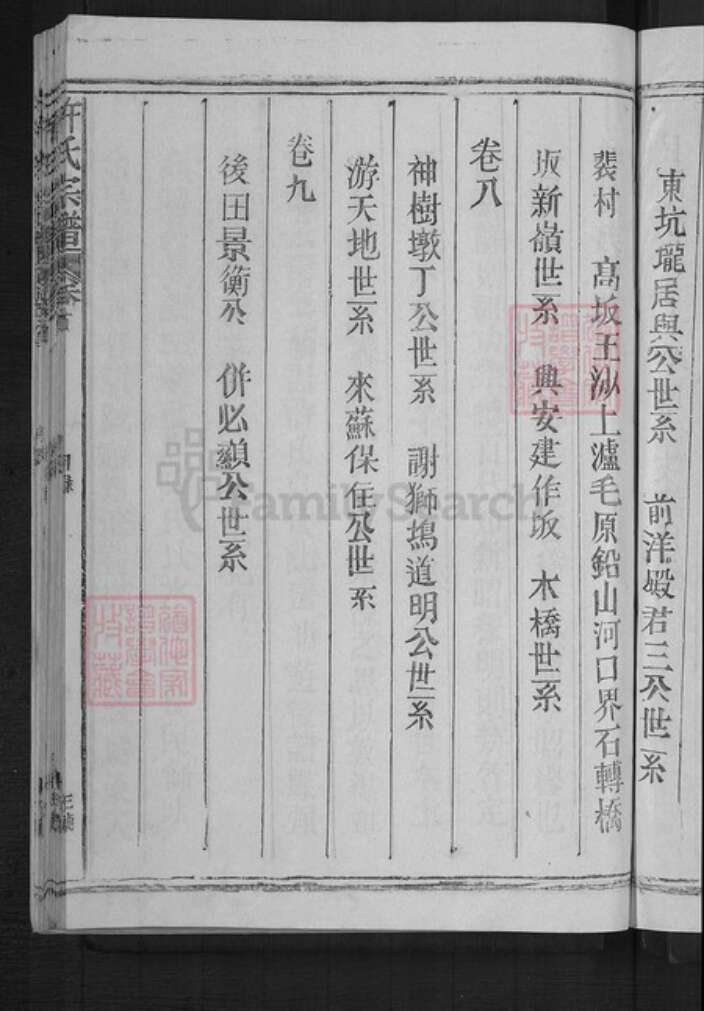 東坑壠居與公世系 前洋殿君三公世系
裴村 高坂王泓上瀘毛原鉛山河口界石轉橋
坂新嶺世系 興安建作坂 木橋世系
卷八
神樹墩丁公世系 謝獅塢道明公世系
游天地世系 來蘇保住公世系
卷九
後田景衡公 併必顯公世系
許氏宗譜 卷首
目錄
FamilySearch